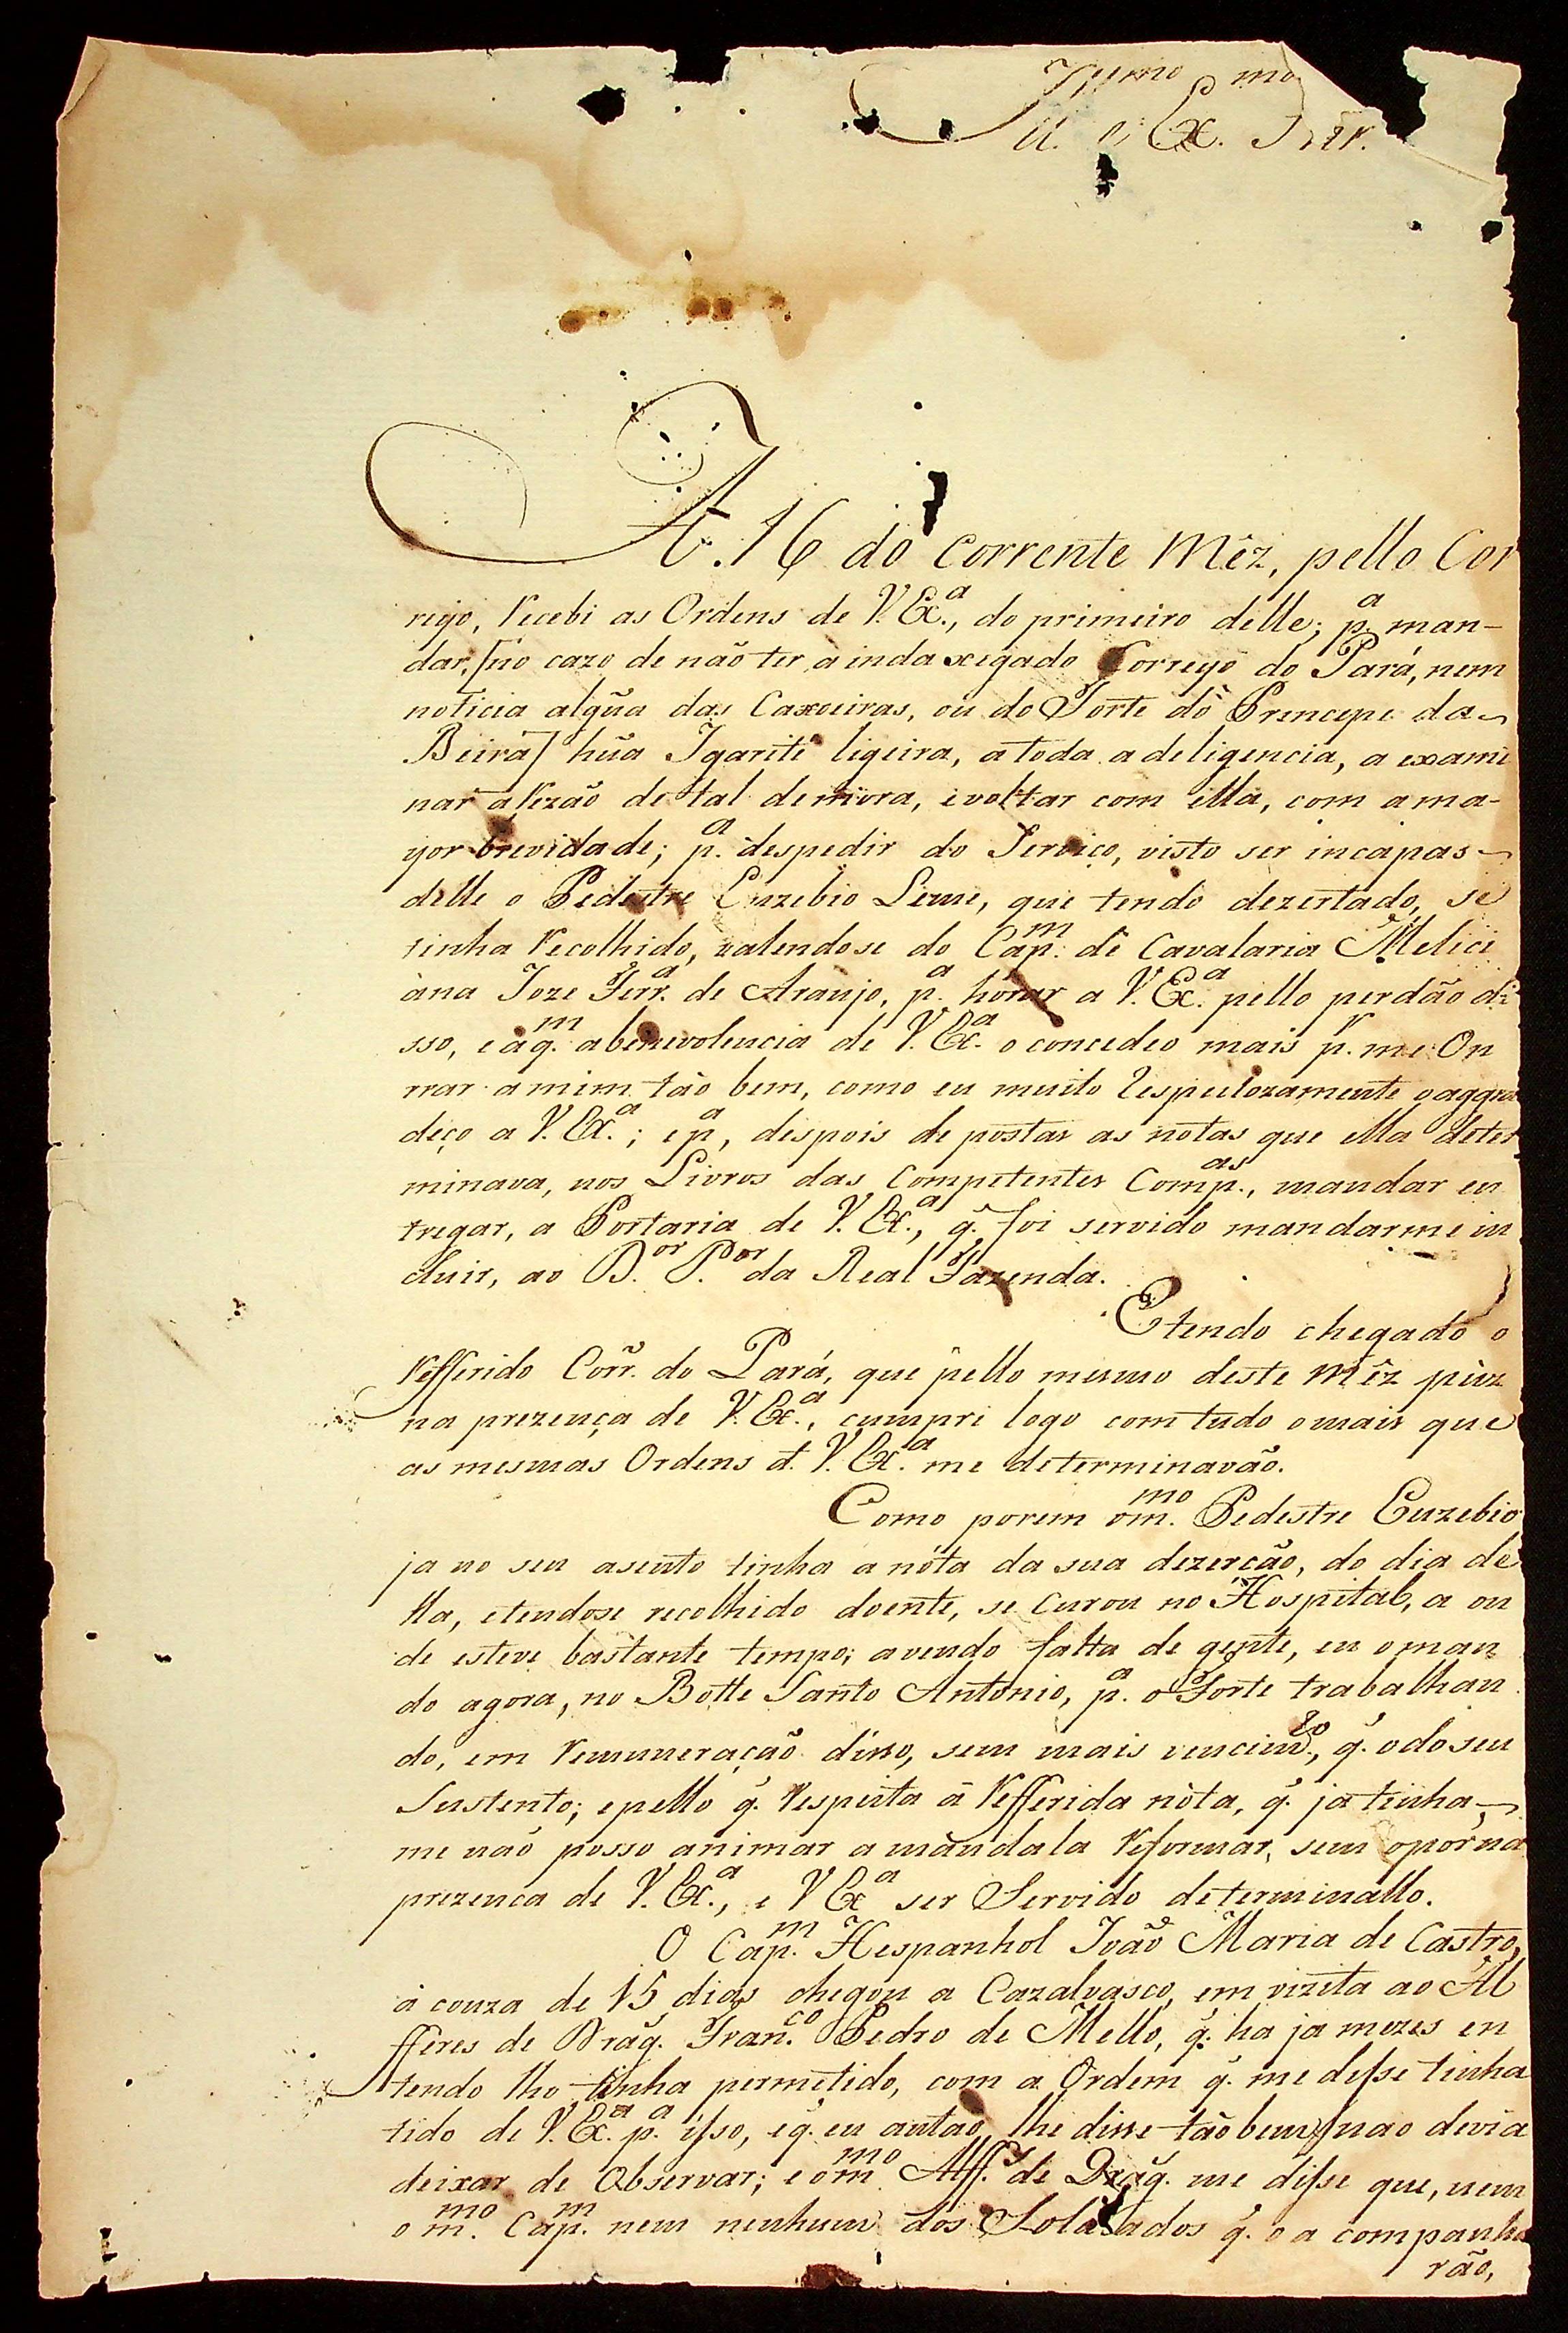 Illmo e Exmo Snr.
A 16 do corrente Mêz, pello Cor
reyo, recebi as Ordens de V. Exa., do primeiro delle; pa. man-
dar, [no cazo de não ter ainda xegado Correyo do Pará, nem
noticia algũa das Caxoeiras, ou do Forte do Princepe da
Beira] hũa Igarité ligeira, a toda a deligencia, a exami
nar a rezão de tal demora, e voltar com ella, com a ma-
yor brevidade; pa. despedir do Serviço, visto ser incapas
delle o Pedestre Euzebio Leme, que tendo dezertado, se
tinha recolhido, valendose do Capm. de Cavalaria Melici
ana Joze Ferra. de Araujo, pa. hórar a V. Exa. pello perdão di
sso, e aqm. a benevolencia de V. Exa. o concedeo mais pr. me On
rrar a mim tão bem, como eu muito respeitozamente o aggra
deço a V. Exa.; e pa, despois de postas as notas que ella deter
minava, nos Livros das Competentes Compas., mandar en
tregar, a Portaria de V. Exa., q. foi servido mandarme in
cluir, ao Dor. Por da Real Fazenda.
E tendo chegado o
refferido Corr. do Pará, que pello mesmo deste Mêz puz
na prezença de V. Exa., cumpri logo com tudo o mais que
as mesmas Ordens d. V. Exa. me determinavão.
Como porem o mmo. Pedestre Euzebio
ja no seu asento tinha a nóta da sua dezerção, do dia de
lla, e tendose recolhido doente, se curou no Hospital, a on
de esteve bastante tempo; avendo falta de gente, eu o man
do agora, no Botte Santo Antonio, pa. o Forte trabalhan
do, em remuneração disso, sem mais vencimto., q. o do seu
Sustento; e pello q. respeita á refferida nóta, q. ja tinha,
me não posso animar a mandala reformar, sem o pôr na
prezenca de V. Exa., e V Exa ser Servido determinallo.
O Capm. Hespanhol João Maria de Castro,
á couza de 15 dias chegou a Cazalvasco, em vizita ao Al
fferes de Drag. Franco. Pedro de Mello, q. ha ja mezes en
tendo lho tinha permetido, com a Ordem q. me disse tinha
tido de V. Exa. pa. isso, e q. eu antão lhe disse tão bem não devia
deixar de Observar; e o mmo Alffs. de Drag. me disse que, nem
o mmo. Capm. nem nenhum dos Soldados q. o a companha
rão,